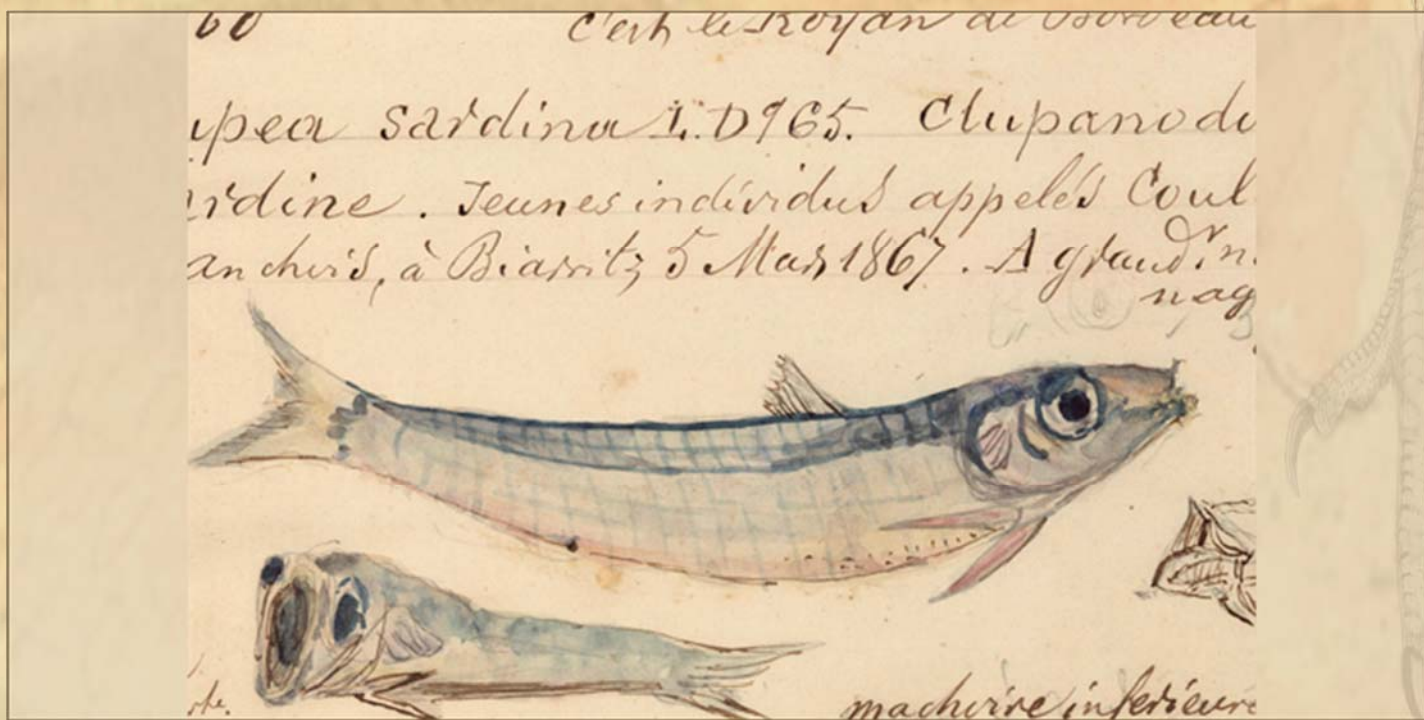 60 c'est le Royan de Bordeau
upea sardina L. D965. Clupanodo
ardine. Jeunes individus appelés Coul
anchois, à Biarritz, 5 Mars 1867. A grand.r n.
nag
machoire inferieure